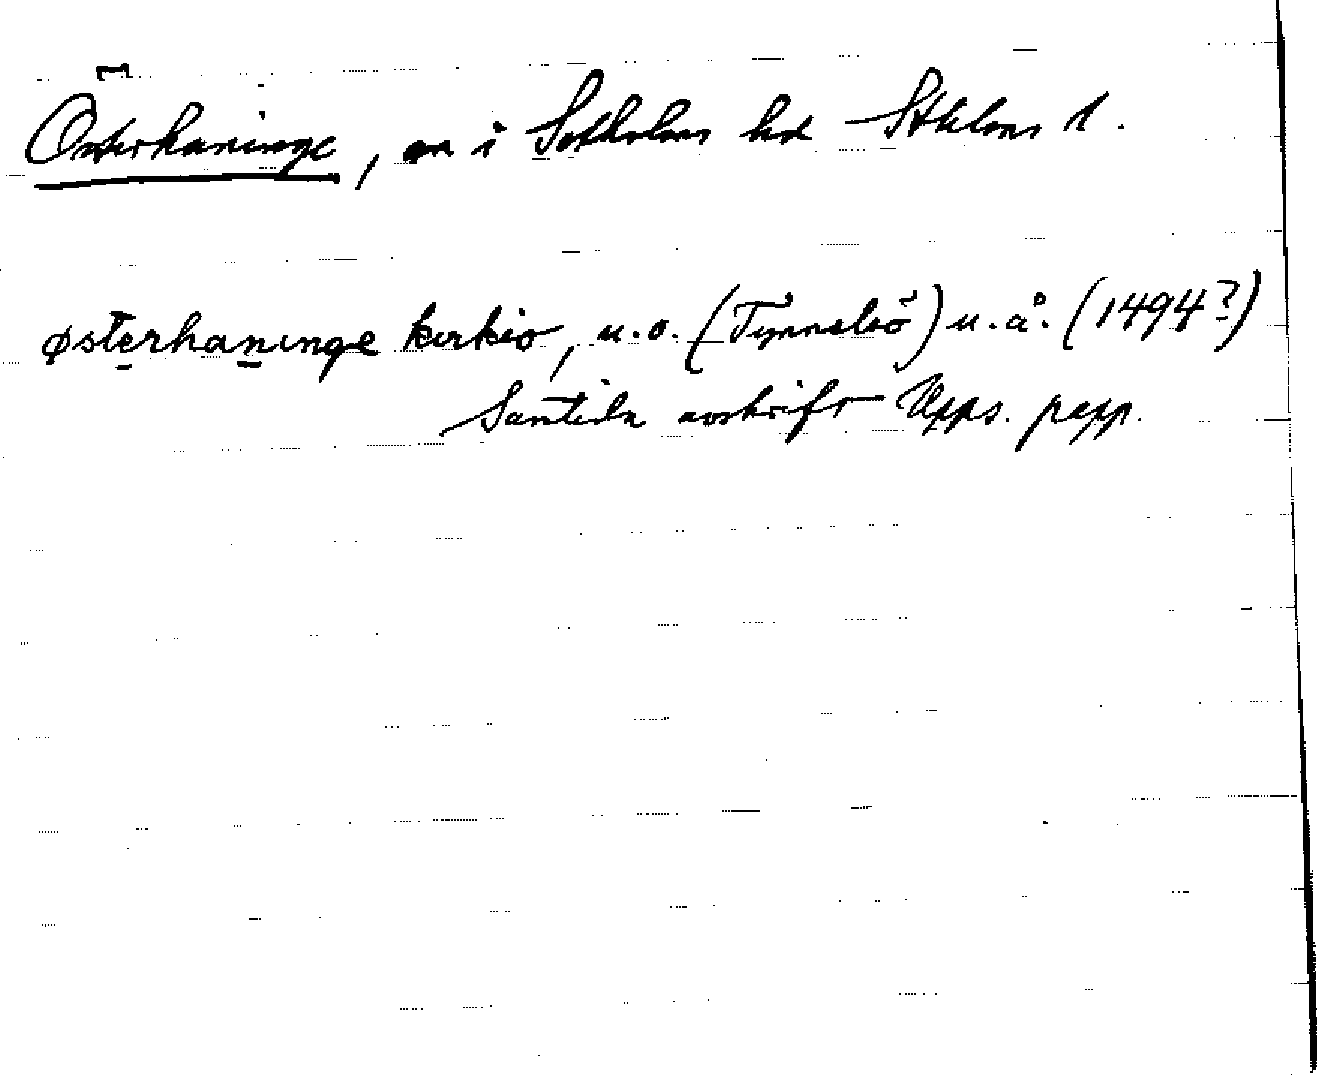 Österhaninge, sn i Sotholms hd Sthlms l.
østerhaninge kirkio, u.o. (Tynnelsö) u.å. (1494?)
Samtida avskrift Upps. papp.